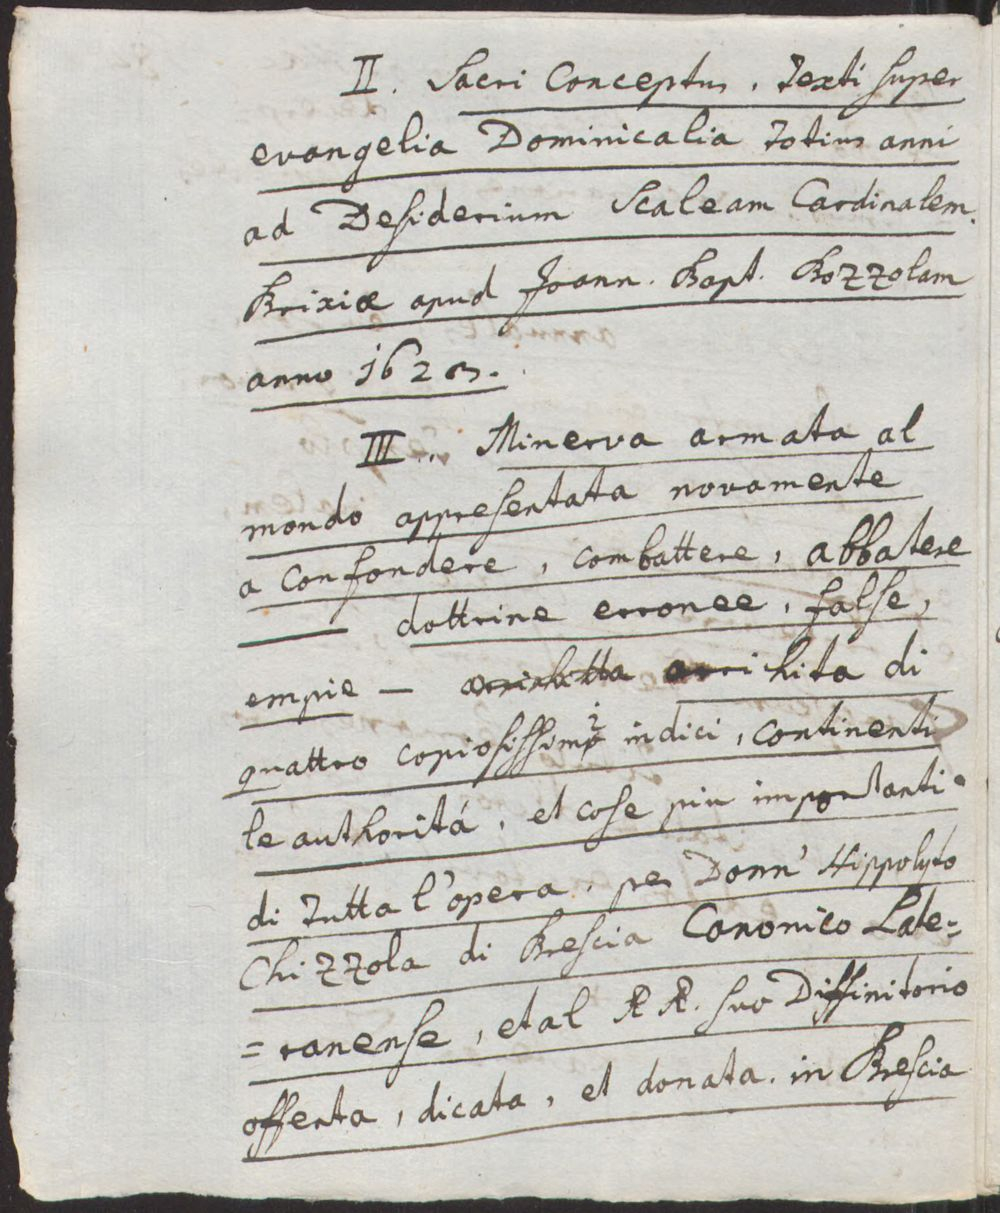 II. Sacri Conceptus, texti super
evangelia Dominicalia totius anni
ad Desiderium Scaleam Cardinalem.
Brixiæ apud Joann. Bapt. Bozzolam
anno 1623.
III.. Minerva armata al
mondo appresentata novamente
a confondere, combattere, abbatere
— dottrine erronee, false,
empie — arrichita di
quattro copiosissimi indici, continenti
le authoritá, et cose piu importanti
di tutta l'opera. per Donn' Hippolyto
Chizzola di Brescia Canonico Late=
=ranense, et al RR. suo Diffinitorio
offerta, dicata, et donata. in Brescia